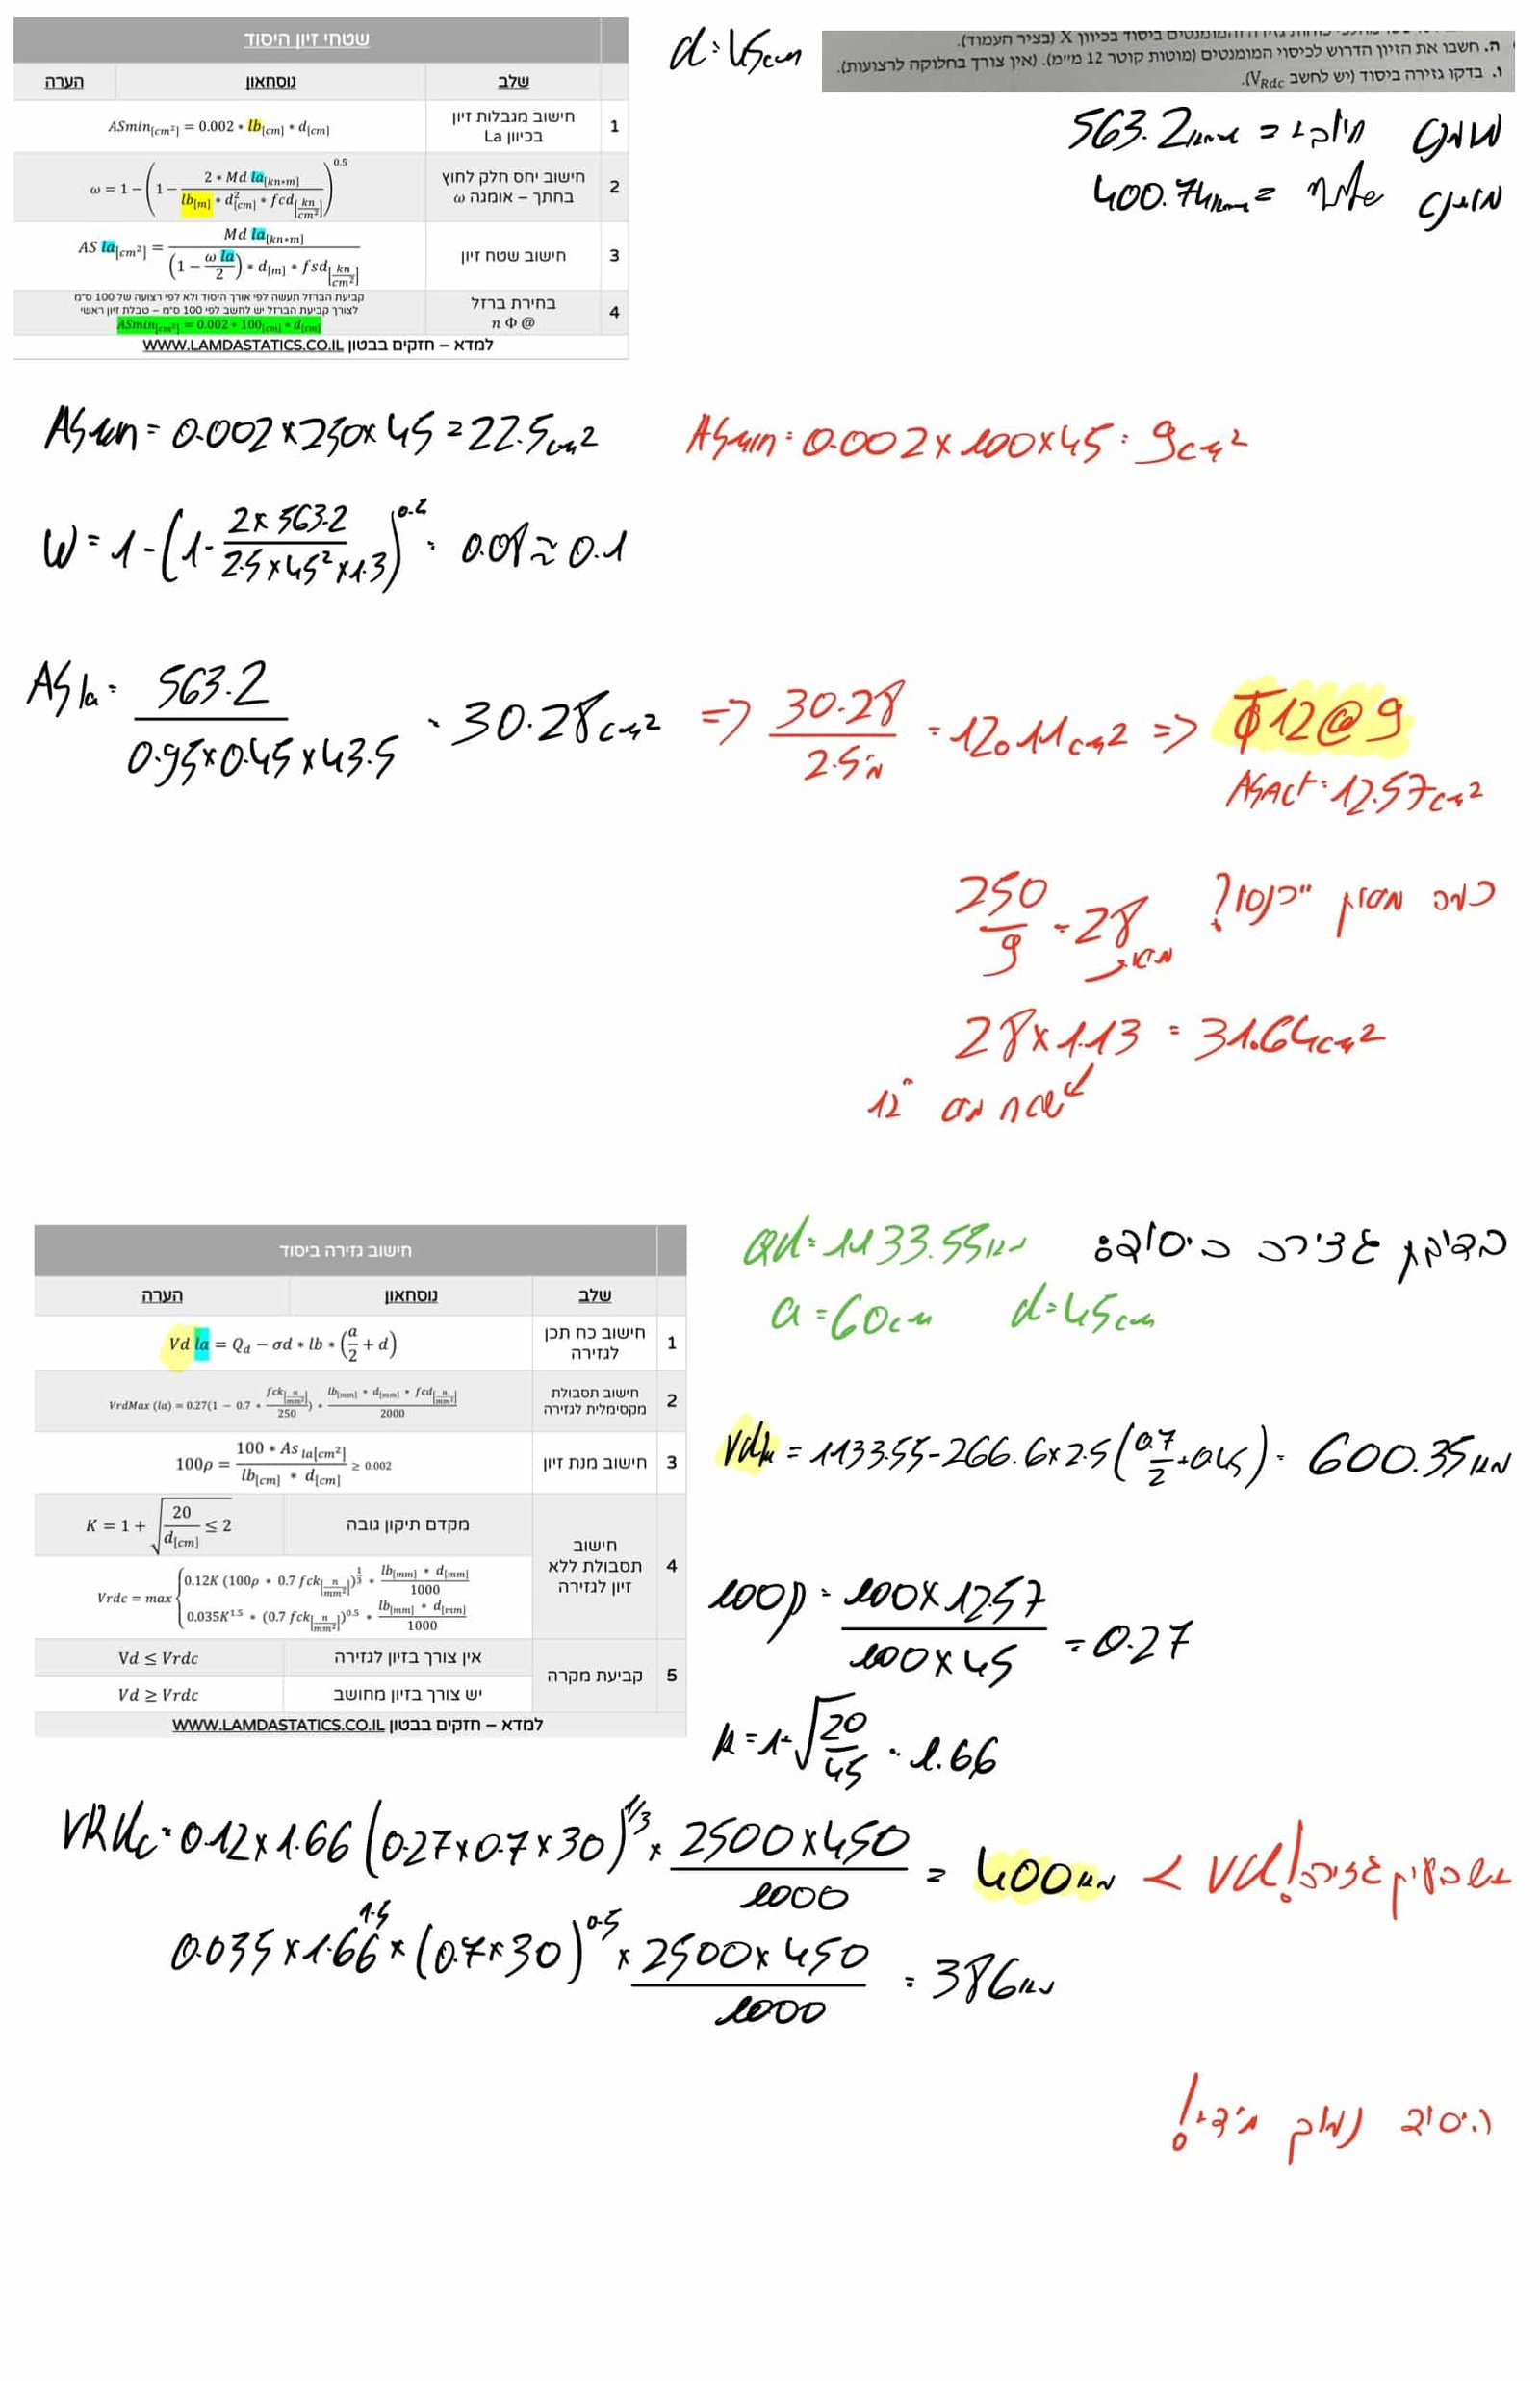 שטחי זיון היסוד
שלב נוסחאון הערה
1 חישוב מגבלות זיון בכיוון La ASmin[cm²] = 0.002 * lb[cm] * d[cm]
2 חישוב יחס חלק לחוץ בחתך – אומגה ω ω = 1 − (1 − (2 * Md la[kn*m]) / (lb[m] * d²[cm] * fcd[kn/cm²]))^0.5
3 חישוב שטח זיון AS la[cm²] = Md la[kn*m] / ((1 − ω la/2) * d[m] * fsd[kn/cm²])
4 בחירת ברזל n Φ @ קביעת הברזל תעשה לפי אורך היסוד ולא לפי רצועה של 100 ס"מ
לצורך קביעת הברזל יש לחשב לפי 100 ס"מ – טבלת זיון ראשי
ASmin[cm²] = 0.002 * 100[cm] * d[cm]
למדא – חזקים בבטון WWW.LAMDASTATICS.CO.IL
d=45cm
המומנטים ביסוד בכיוון X (בציר העמוד).
ה. חשבו את הזיון הדרוש לכיסוי המומנטים (מוטות קוטר 12 מ"מ). (אין צורך בחלוקה לרצועות).
ו. בדקו גזירה ביסוד (יש לחשב VRdc).
מומנט חיובי = 563.2
מומנט שלילי = 400.74
ASmin = 0.002x250x45 = 22.5cm²
ASmin = 0.002x100x45 = 9cm²
W = 1-(1- 2x563.2 / 2.5x45²x1.3)^0.5 = 0.08 ≈ 0.1
ASla = 563.2 / 0.95x0.45x43.5 = 30.28cm² => 30.28 / 2.5מ' = 12.11cm² => Φ12@9
ASAct = 12.57cm²
כמה מוטות ייכנסו? 250/9 = 28 מוטות
28x1.13 = 31.64cm²
שטח מוט 12
בדיקת גזירה ביסוד:
Qd = 1133.55kN
a = 60cm d=45cm
חישוב גזירה ביסוד
שלב נוסחאון הערה
1 חישוב כח תכן לגזירה Vd la = Qd − σd * lb * (a/2 + d)
2 חישוב תסבולת מקסימלית לגזירה VrdMax (la) = 0.27(1 − 0.7 * fck[n/mm²]/250) * lb[mm] * d[mm] * fcd[n/mm²] / 2000
3 חישוב מנת זיון 100ρ = 100 * As la[cm²] / lb[cm] * d[cm] ≥ 0.002
4 חישוב תסבולת ללא זיון לגזירה מקדם תיקון גובה K = 1 + √(20/d[cm]) ≤ 2
Vrdc = max { 0.12K (100ρ * 0.7 fck[n/mm²])^1/3 * lb[mm] * d[mm] / 1000
0.035K^1.5 * (0.7 fck[n/mm²])^0.5 * lb[mm] * d[mm] / 1000
5 קביעת מקרה אין צורך בזיון לגזירה Vd ≤ Vrdc
יש צורך בזיון מחושב Vd ≥ Vrdc
למדא – חזקים בבטון WWW.LAMDASTATICS.CO.IL
Vdla = 1133.55-266.6x2.5(0.7/2+0.45) = 600.35kN
100ρ = 100x12.57 / 100x45 = 0.27
k = 1+√(20/45) = 1.66
VRdc = 0.12x1.66(0.27x0.7x30)^1/3 x 2500x450 / 1000 = 400kN < Vd! יש בעיית גזירה
0.035x1.66^1.5x(0.7x30)^0.5 x 2500x450 / 1000 = 386kN
היסוד נמוך מידי!